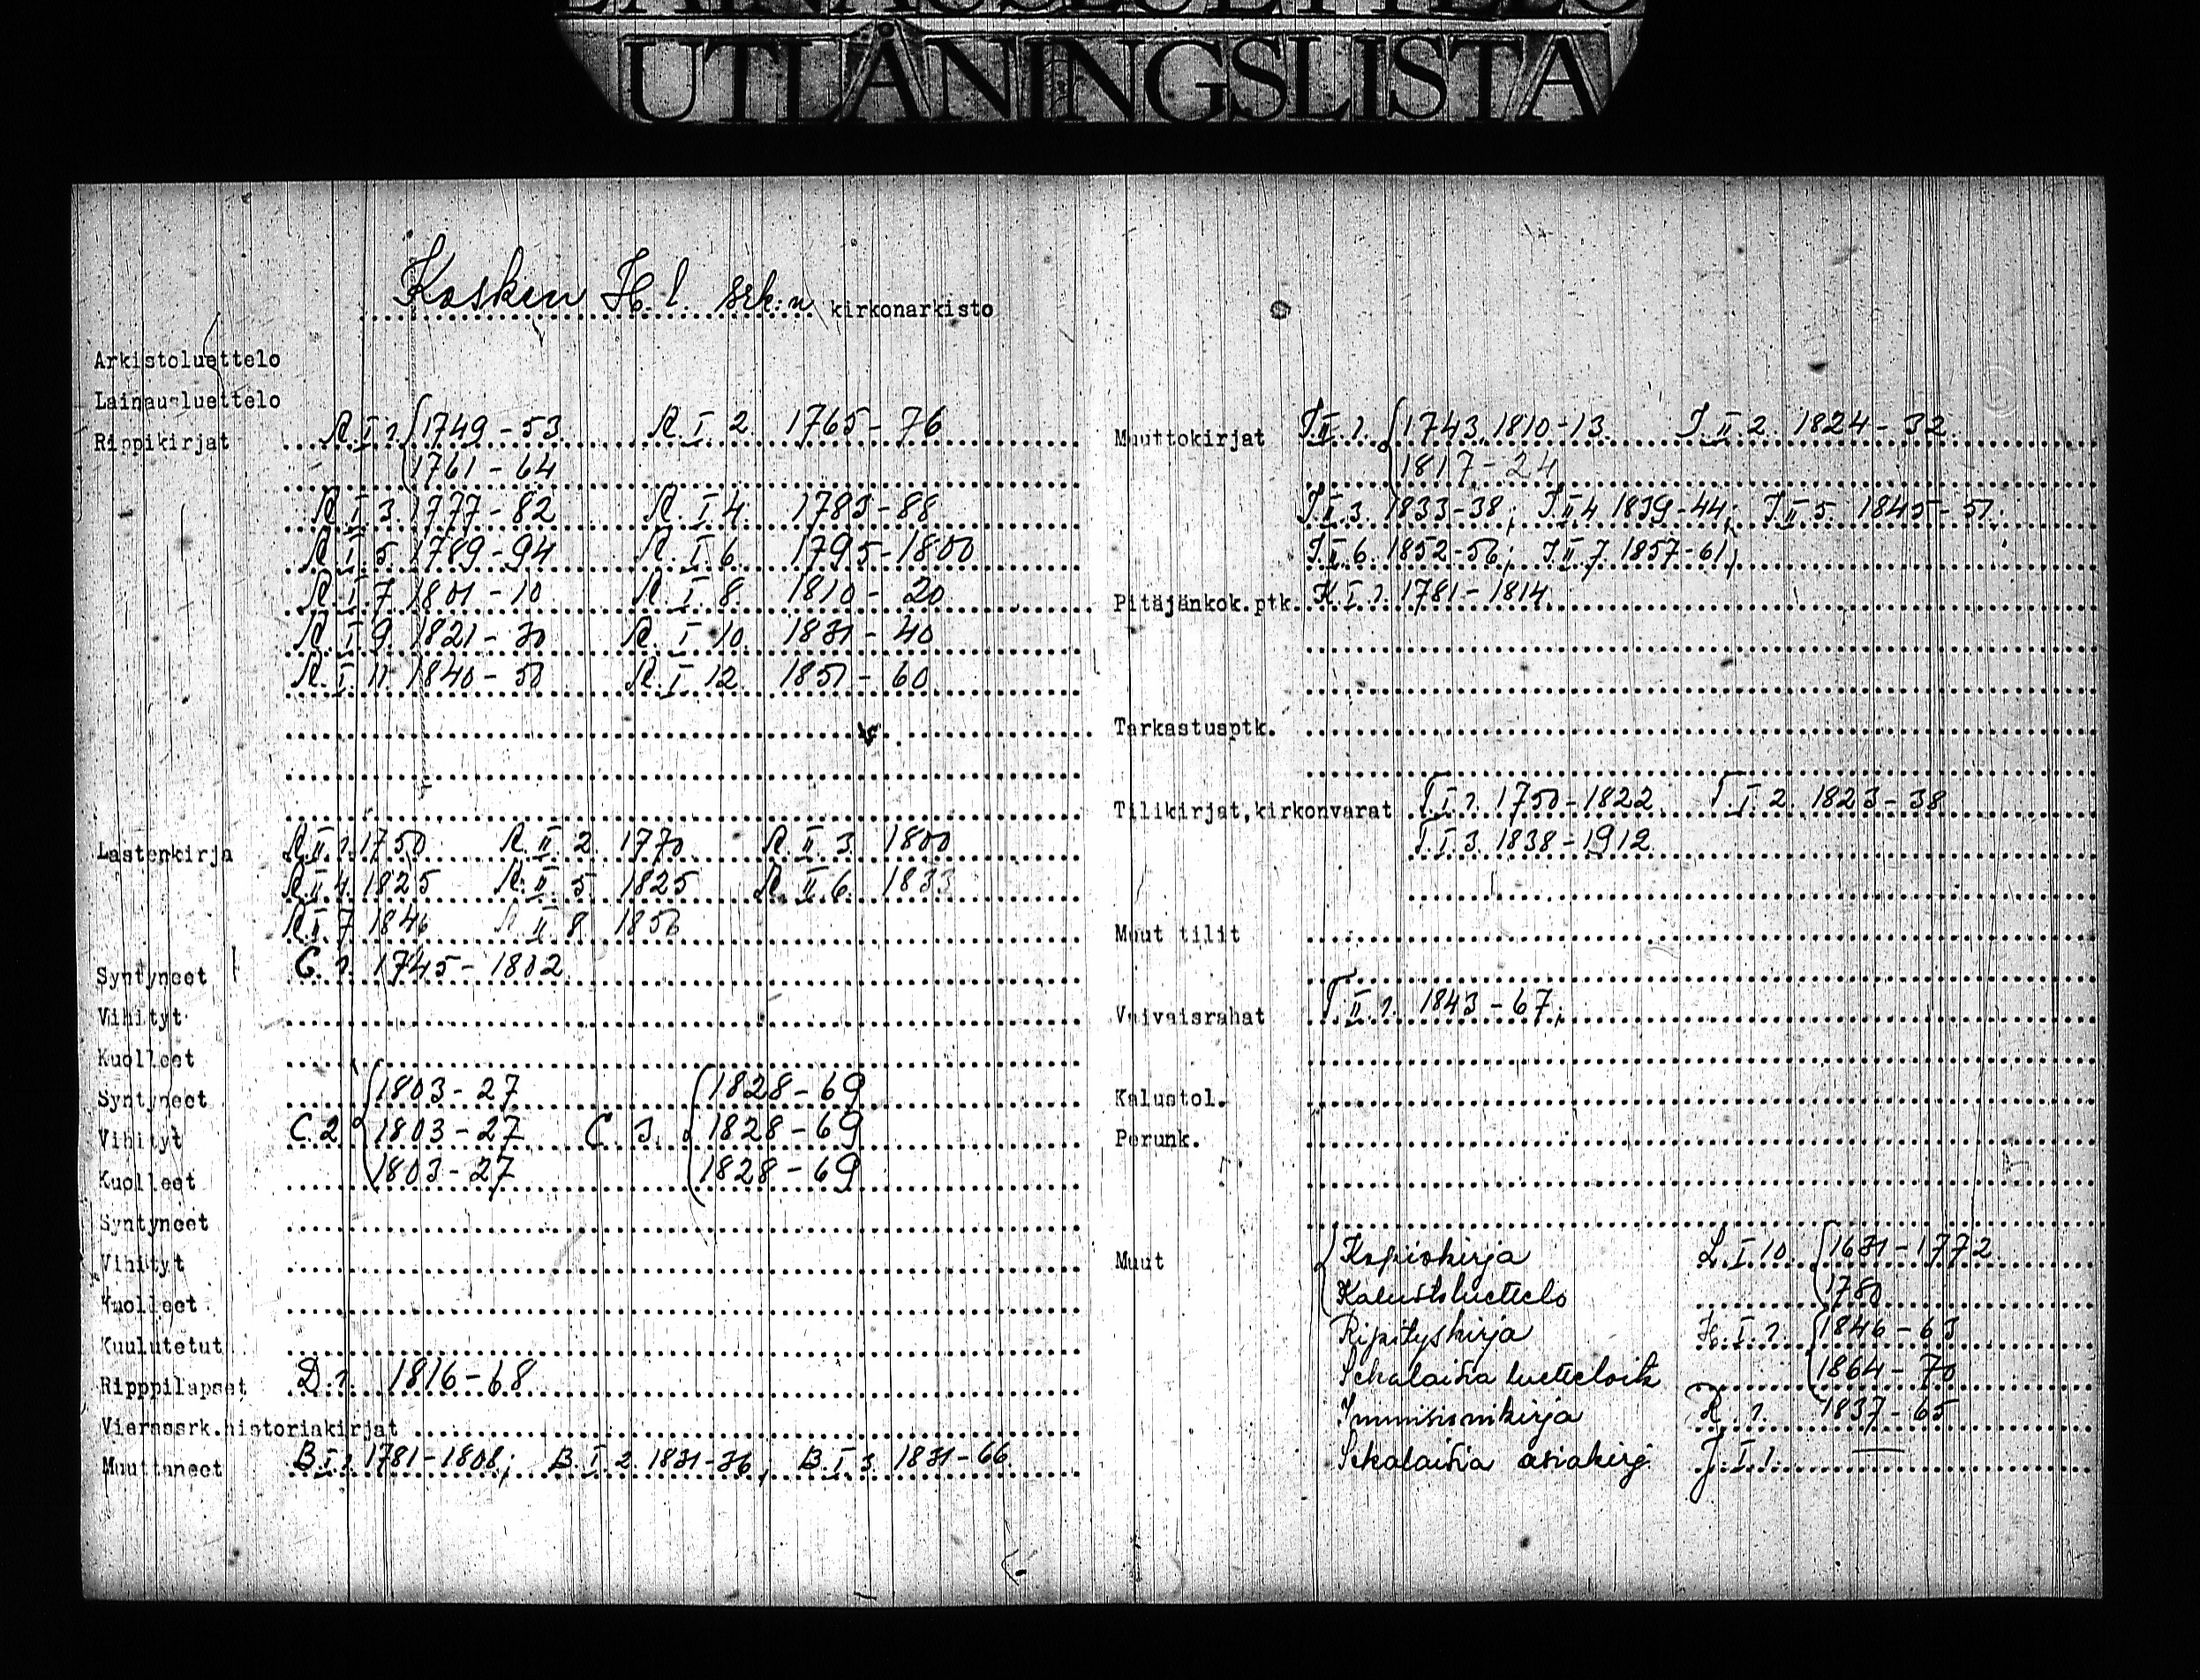 LAINAUSLUETTELO
UTLÅNINGSLISTA
Kosken H.l. srk:n kirkonarkisto
Arkistoluettelo
Lainausluettelo
Rippikirjat R.I.1. 1749-53 R.I.2. 1765-76
1761-64
R.I.3. 1777-82 R.I.4. 1783-88
R.I.5. 1789-94 R.I.6. 1795-1800
R.I.7. 1801-10 R.I.8. 1810-20
R.I.9. 1821-30 R.I.10. 1831-40
R.I.11. 1840-50 R.I.12. 1851-60
Lastenkirja R.II.1. 1750 R.II.2. 1770 R.II.3. 1800
R.II.4. 1825 R.II.5. 1825 R.II.6. 1833
R.II.7. 1846 R.II.8. 1856
Syntyneet C.1. 1745-1802
Vihityt
Kuolleet
Syntyneet 1803-27 1828-69
Vihityt C.2. 1803-27 C.3. 1828-69
Kuolleet 1803-27 1828-69
Syntyneet
Vihityt
Kuolleet
Kuulutetut
Ripppilapset D.1. 1816-68
Vierassrk.historiakirjat
Muuttaneet B.I.1. 1781-1808; B.I.2. 1831-36; B.I.3. 1831-66
Muuttokirjat J.II.1. 1743, 1810-13. J.II.2. 1824-32.
1817-24
J.II.3. 1833-38; J.II.4. 1839-44; J.II.5. 1845-51.
J.II.6. 1852-56; J.II.7. 1857-61;
Pitäjänkok.ptk. K.I.1. 1781-1814
Tarkastusptk.
Tilikirjat,kirkonvarat T.I.1. 1750-1822. T.I.2. 1823-38
T.I.3. 1838-1912
Muut tilit
Vaivaisrahat T.II.1. 1843-67;
Kalustol.
Perunk.
Muut Kopiokirja L.I.10. 1631-1772
Kalustoluettelo 1780
Ripityskirja H.I.1. 1846-63
Sekalaisia luetteloita 1864-70
Immisionikirja R.1. 1837-65
Sekalaisia asiakirj. J.I.1. —